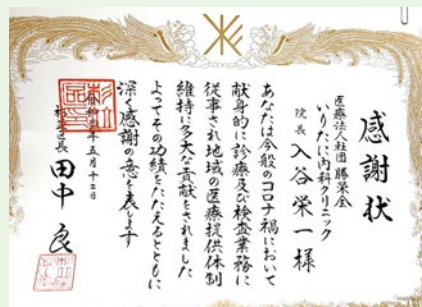 感謝状
医療法人社団 勝榮会
いりたに内科クリニック
院長 入谷栄一様
あなたは今般のコロナ禍において
献身的に診療及び検査業務に
従事され地域の医療提供体制
維持に多大な貢献をされました
よってその功績をたたえるとともに
深く感謝の意を表します
年五月十二日
杉並区長 田中良